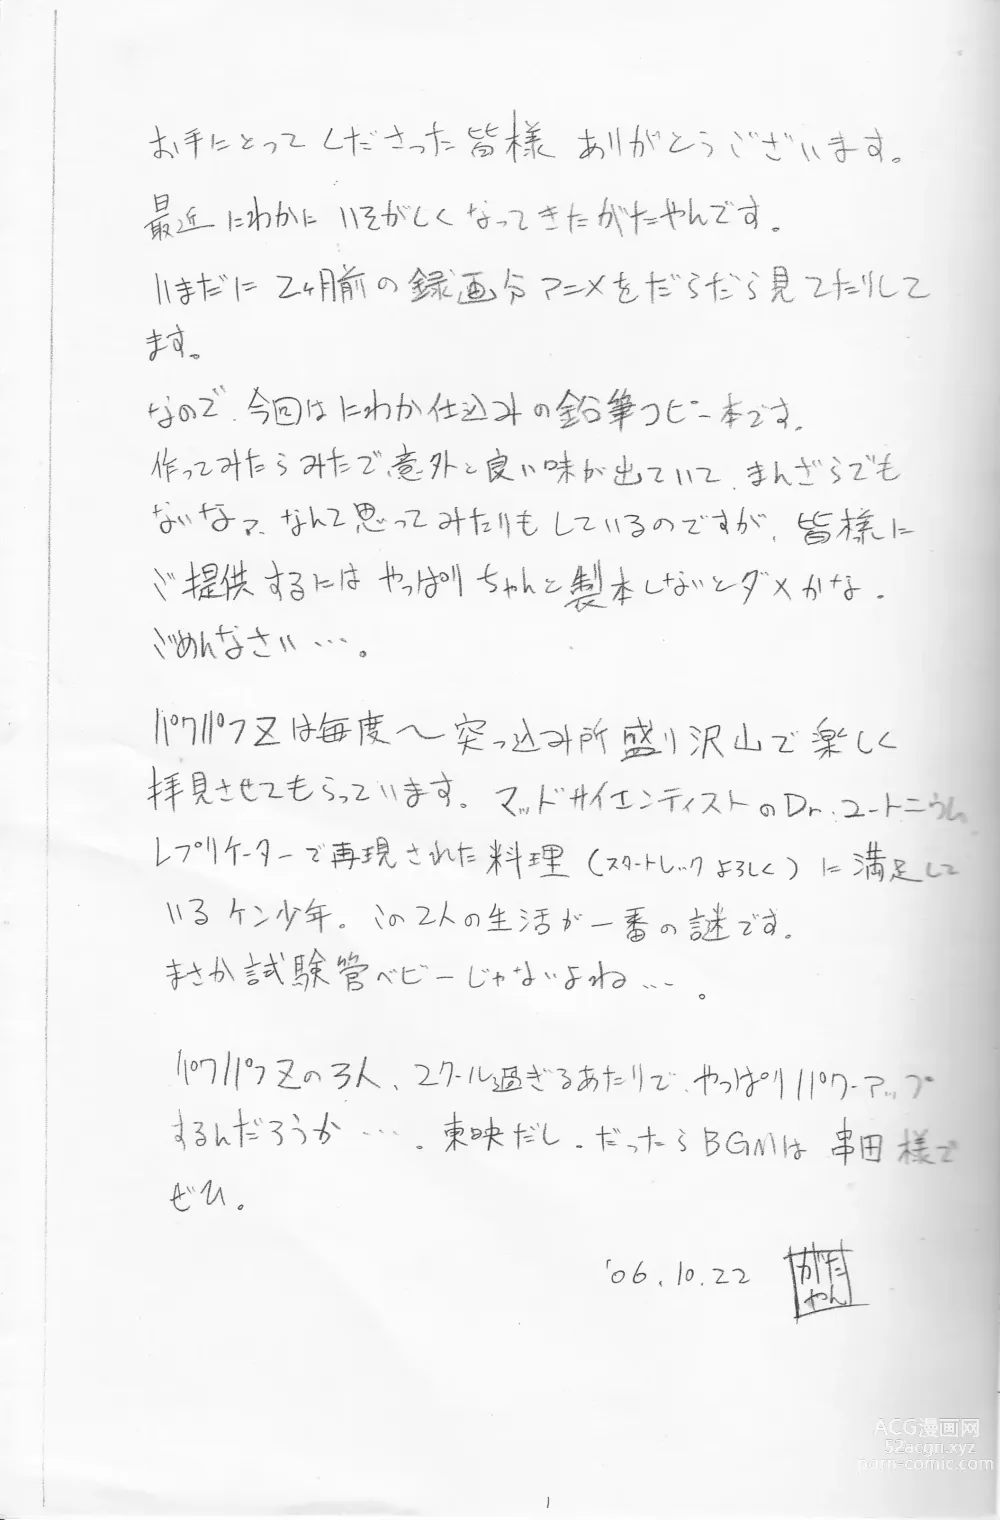 お手にとってくださった皆様 ありがとうございます。
最近にわかに いそがしくなってきたがたやんです。
いまだに 2ヶ月前の録画分アニメをだらだら見てたりして
ます。
なので、今回はにわか仕込みの鉛筆コピー本です。
作ってみたらみたで、意外と良い味が出ていて、まんざらでも
ないなァ、なんて思ってみたりもしているのですが、皆様に
ご提供するには やっぱりちゃんと製本しないとダメかな。
ごめんなさい…。
パワパフZは毎度〜突っ込み所盛り沢山で楽しく
拝見させてもらっています。マッドサイエンティストのDr.ユートニウム、
レプリケーターで再現された料理(スタートレックよろしく)に満足して
いるケン少年。この2人の生活が一番の謎です。
まさか試験管ベビーじゃないよね…。
パワパフZの3人、スクール過ぎるあたりで、やっぱりパワーアップ
するんだろうか…。東映だし。だったらBGMは 串田様で
ぜひ。
'06.10.22
がた
やん
1
ACG漫画网
52acgn.xyz
porn-comic.com